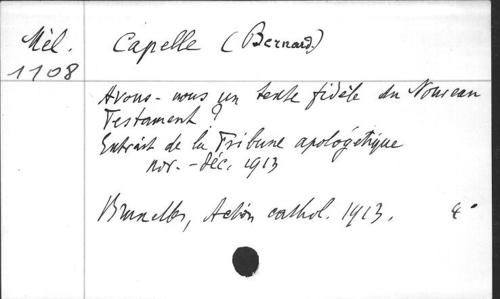 Mèl. Capelle (Bernard)
1108
Avons-nous un texte fidèle du Nouveau
Testament ?
Extrait de la Tribune apologétique
nov.-déc. 1913
Bruxelles, Action cathol. 1913. 4°